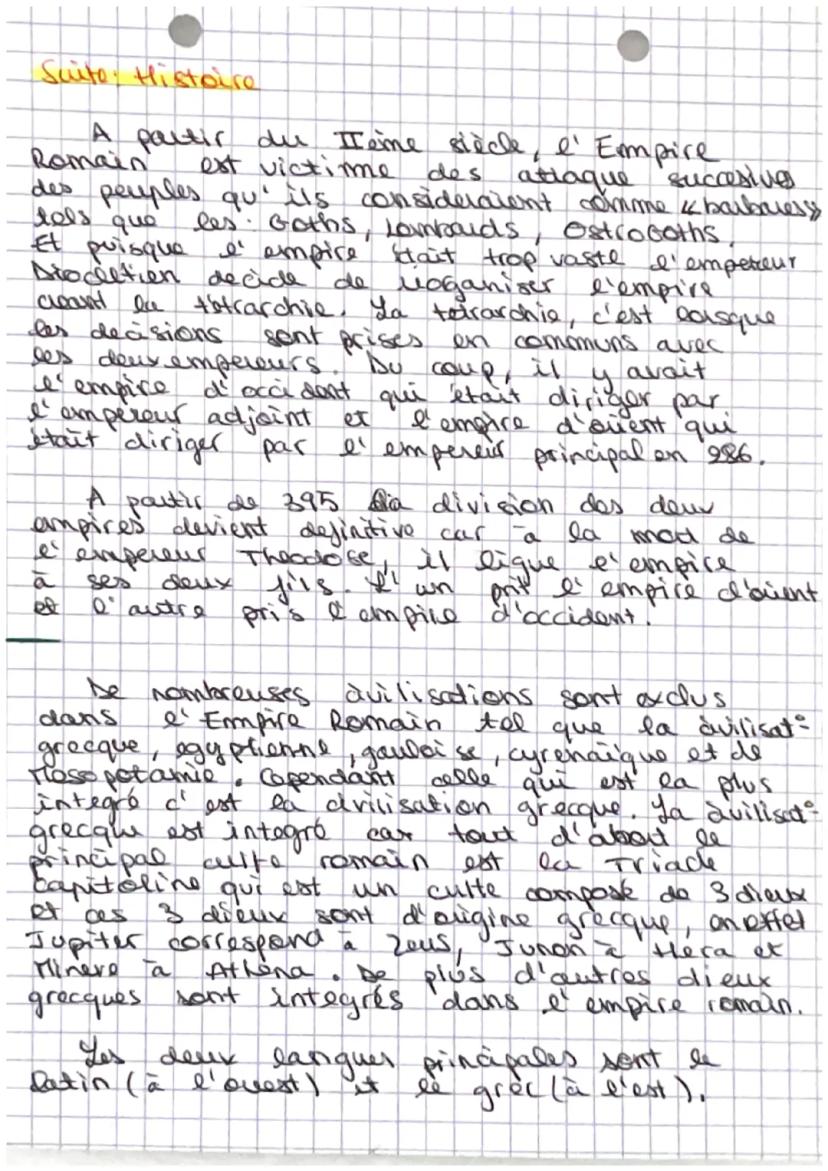 Suite: Histoire
A partir du IIème siècle, l'Empire
Romain est victime des attaque succesives
des peuples qu'ils consideraient comme «barbares»
tels que les: Goths, Lombards, OstroGoths.
Et puisque l'empire était trop vaste l'empereur
Diocletien decide de réoganiser l'empire
créant la tétrarchie. La tetrarchie, c'est lorsque
les decisions sont prises en communs avec
les deux empereurs. Du coup, il y avait
l'empire d'occident qui était diriger par
l'empereur adjoint et l'empire d'orient qui
était diriger par l'empereur principal en 286.
A partir de 395 la division des deux
empires devient definitive car à la mort de
l'empereur Theodose, il ligue l'empire
à ses deux fils. L'un prit l'empire d'orient
et l'autre pris l'empire d'occident.
De nombreuses civilisations sont exclus
dans l'Empire Romain tel que la civilisat°
grecque, egyptienne, gauloise, cyrenaïque et de
Mesopotamie. Cependant celle qui est la plus
integré c'est la civilisation grecque. La civilisat°
grecque est integré car tout d'abord le
principal culte romain est la Triade
Capitoline qui est un culte composé de 3 dieux
et ces 3 dieux sont d'origine grecque, en effet
Jupiter correspond à Zeus, Junon à Hera et
Minere à Athéna. De plus d'autres dieux
grecques sont integrés dans l'empire romain.
Les deux langues principales sont le
latin (à l'ouest) et le grec (à l'est).